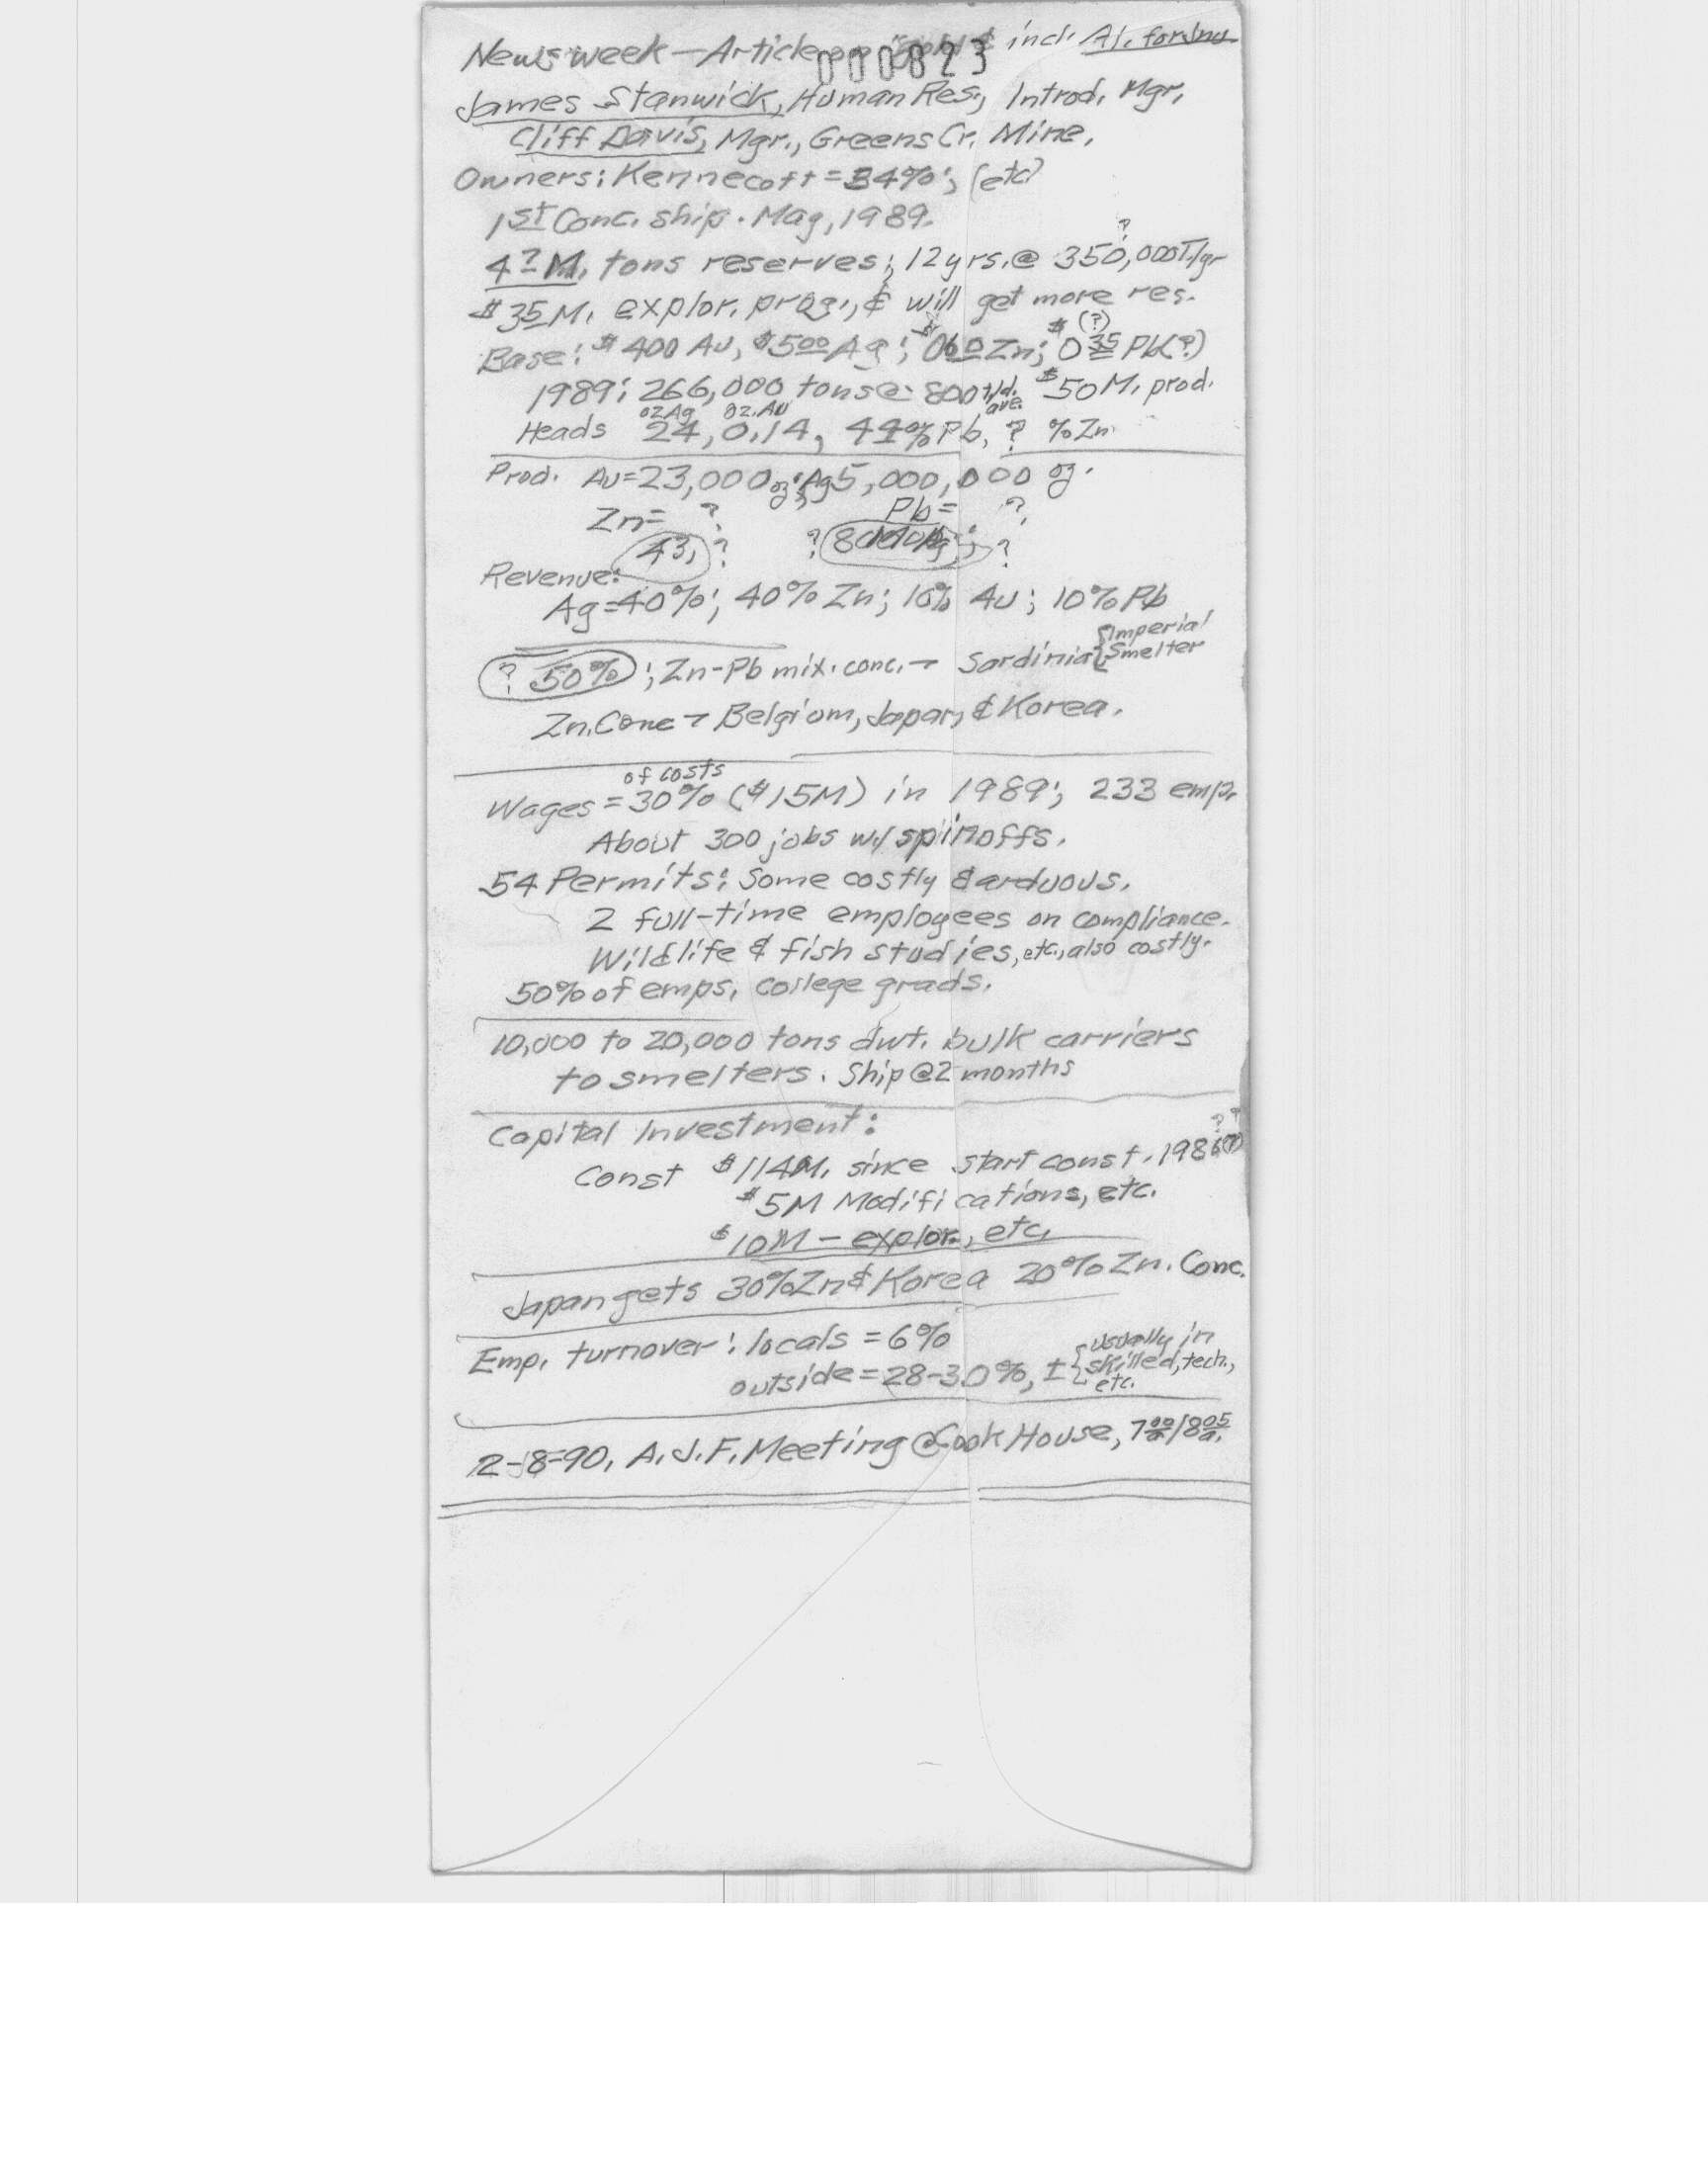 Newsweek — Article on "Gold" & incl. A.J. for Jnu
000823
James Stanwick, Human Res., Introd. Mgr,
Cliff Davis, Mgr., Greens Cr. Mine.
Owners: Kennecott = 34%; (etc)
1st Conc. ship. May, 1989.
?
4? M. tons reserves; 12 yrs. @ 350,000T/yr
$35M. explor. prog., & will get more res.
(?)
Base: $400 Au, $5.00 Ag; $0.60 Zn; $0.35 Pb(?)
1989: 266,000 tons @ 800 t/d. ave. $50M. prod.
oz Ag oz. Au
Heads 24, 0.14, 4% Pb, ? % Zn
Prod. Au=23,000 oz; Ag 5,000,000 oz.
Zn= ? Pb= ?
43, ? ? ?
Revenue:
Ag=40%; 40% Zn; 10% Au; 10% Pb
? 50%; Zn-Pb mix. conc. → Sardinia { Imperial Smelter
Zn. Conc → Belgium, Japan, & Korea.
of costs
Wages = 30% ($15M) in 1989; 233 emp.
About 300 jobs w/ spinoffs.
54 Permits: Some costly & arduous.
2 full-time employees on compliance.
Wildlife & fish studies, etc., also costly.
50% of emps. college grads.
10,000 to 20,000 tons dwt. bulk carriers
to smelters. Ship @ 2 months
Capital Investment:
? ?
Const $114M. since start const. 1986(7)
$5M Modifications, etc.
$10M — explor., etc.
Japan gets 30% Zn & Korea 20% Zn. Conc.
Emp. turnover: locals = 6%
outside = 28-30%, ± { usually in skilled, tech., etc.
2-8-90, A.J.F. Meeting @ Cook House, 7:00a/8:05a.